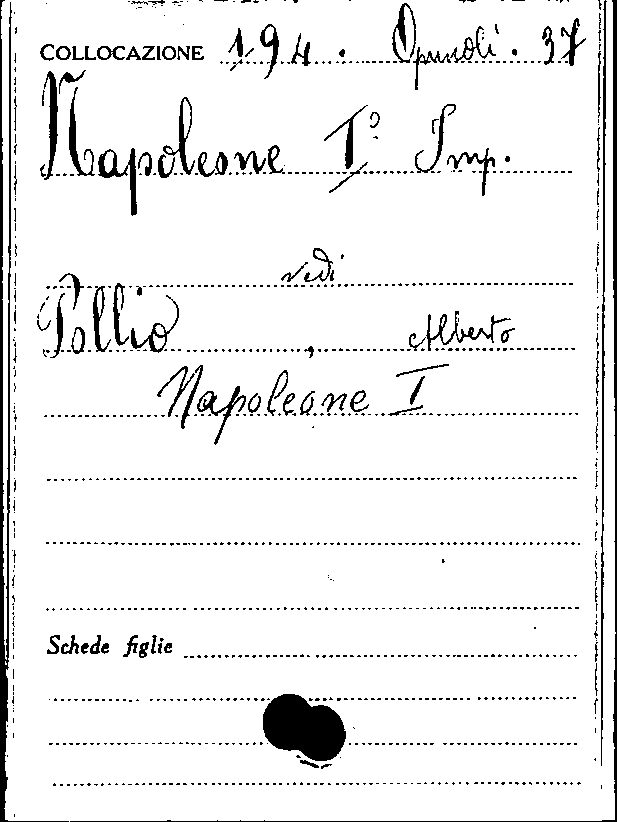 COLLOCAZIONE 194. Opuscoli. 37
Napoleone I° Imp.
vedi
Pollio, Alberto
Napoleone I
Schede figlie